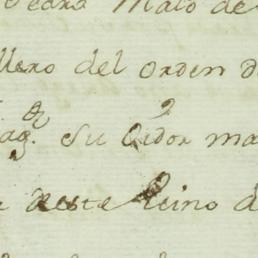 Pedro Malo de
llero del Orden d
ag. Su Oidor ma
deste Reino d